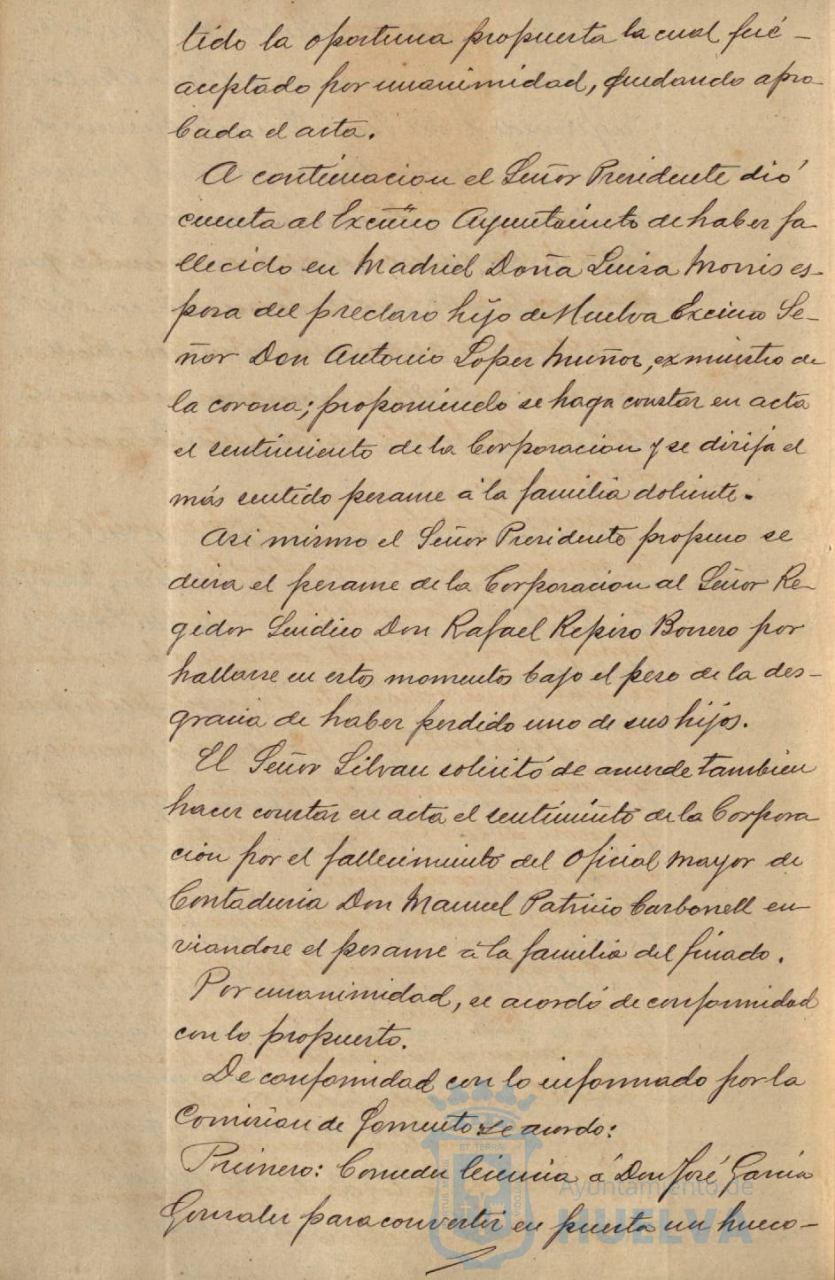 tido la oportuna propuesta la cual fué -
aceptado por unanimidad, quedando apro-
bada el acta.
A continuacion el Señor Presidente dió
cuenta al Excmo Ayuntamiento de haber fa-
llecido en Madrid Doña Luisa Morris es-
posa del preclaro hijo de Huelva Excmo Se-
ñor Don Antonio Lopez Muñoz, ex ministro de
la corona; proponiendo se haga constar en acta
el sentimiento de la Corporacion y se dirija el
más sentido pesame á la familia doliente.
Asi mismo el Señor Presidente propuso se
diera el pesame de la Corporacion al Señor Re-
gidor Sindico Don Rafael Repiso Borrero por
hallarse en estos momentos bajo el peso de la des-
gracia de haber perdido uno de sus hijos.
El Señor Silvan solicitó se acuerde tambien
hacer constar en acta el sentimiento de la Corpora
cion por el fallecimiento del Oficial mayor de
Contaduria Don Manuel Patricio Carbonell en
viandose el pesame á la familia del finado.
Por unanimidad, se acordó de conformidad
con lo propuesto.
De conformidad con lo informado por la
Comision de Fomento se acordo:
Primero: Conceder licencia á Don José García
Gonzalez para convertir en puerta un hueco -
Ayuntamiento de
HUELVA